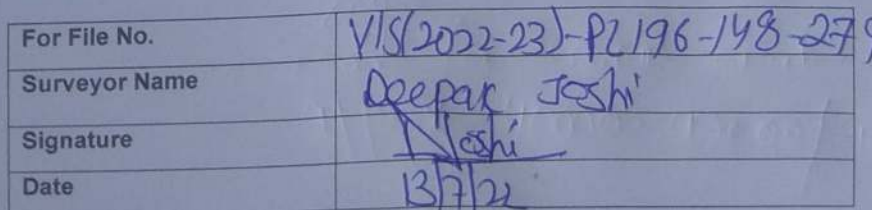 For File No. VIS(2022-23)-PL196-148-279
Surveyor Name Deepak Joshi
Signature DJoshi
Date 13/7/22